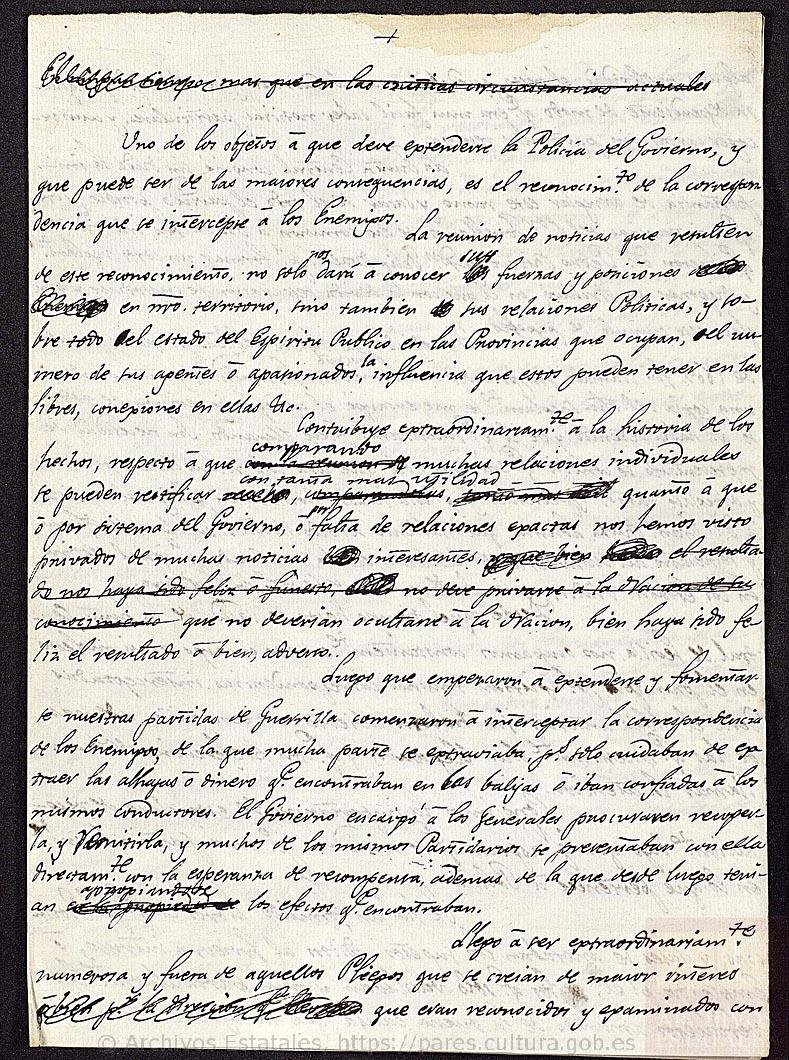 +
mas que en las criticas circunstancias actuales
Uno de los objetos à que deve extenderse la Policia del Govierno, y
que puede ser de las maiores consequencias, es el reconocim.to de la correspon
dencia que se intercepte à los Enemigos.
La reunion de noticias que resulten
de este reconocimiento, no solo nos dará à conocer sus fuerzas y posiciones
en nro. territorio, sino tambien sus relaciones Politicas, y so-
bre todo el estado del Espiritu Publico en las Provincias que ocupan, el nu-
mero de sus agentes ò apasionados, la influencia que estos pueden tener en las
libres, conexiones en ellas &c.
Contribuye extraordinariam.te à la historia de los
comparando
hechos, respecto à que con la reunion de muchas relaciones individuales
con tanta mas utilidad
se pueden rectificar, comparandolas, tanto mas util quanto à que
ò por sistema del Govierno, ò por falta de relaciones exactas nos hemos visto
privados de muchas noticias interesantes, que bien el resulta-
do nos haya sido feliz ò funesto, no deve privarse à la Nacion de su
conocimiento que no deverian ocultarse à la Nacion, bien haya sido fe-
liz el resultado ò bien adverso.
Luego que empezaron à extenderse y fomentar-
se nuestras partidas de Guerrilla comenzaron à interceptar la correspondencia
de los Enemigos, de la que mucha parte se extraviaba, p.r solo cuidaban de ex-
traer las alhajas ò dinero q.e encontraban en las balijas ò iban confiadas à los
mismos conductores. El Govierno encargó à los Generales procurasen recoger-
la, y remitirla, y muchos de los mismos Partidarios se presentaban con ella
directam.te con la esperanza de recompensa, ademas de la que desde luego teni-
apropiandose
an en la propiedad de los efectos q.e encontraban.
Llego à ser extraordinariam.te
numerosa y fuera de aquellos Pliegos que se creian de maior interes
que eran reconocidos y examinados con
© Archivos Estatales, https://pares.cultura.gob.es